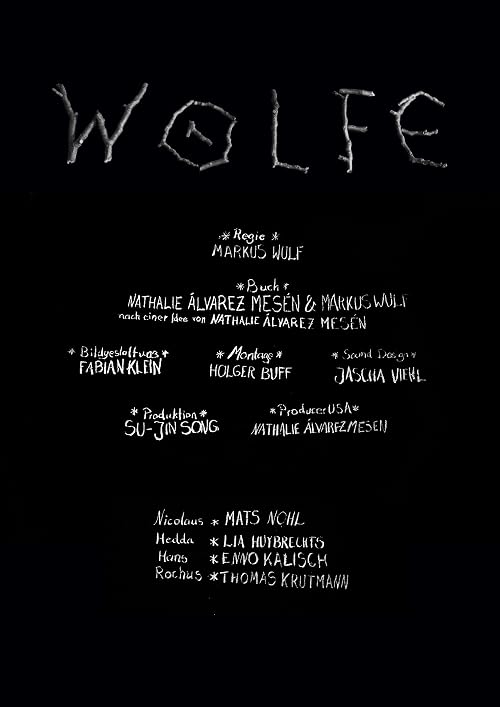 WOLFE
* Regie *
MARKUS WULF
* Buch *
NATHALIE ÁLVAREZ MESÉN & MARKUS WULF
nach einer Idee von NATHALIE ÁLVAREZ MESÉN
* Bildgestaltung * * Montage * * Sound Design *
FABIAN KLEIN HOLGER BUFF JASCHA VIEHL
* Produktion * * Producer USA *
SU-JIN SONG NATHALIE ÁLVAREZ MESÉN
Nicolaus * MATS NOHL
Hedda * LIA HUYBRECHTS
Hans * ENNO KALISCH
Rochus * THOMAS KRUTMANN